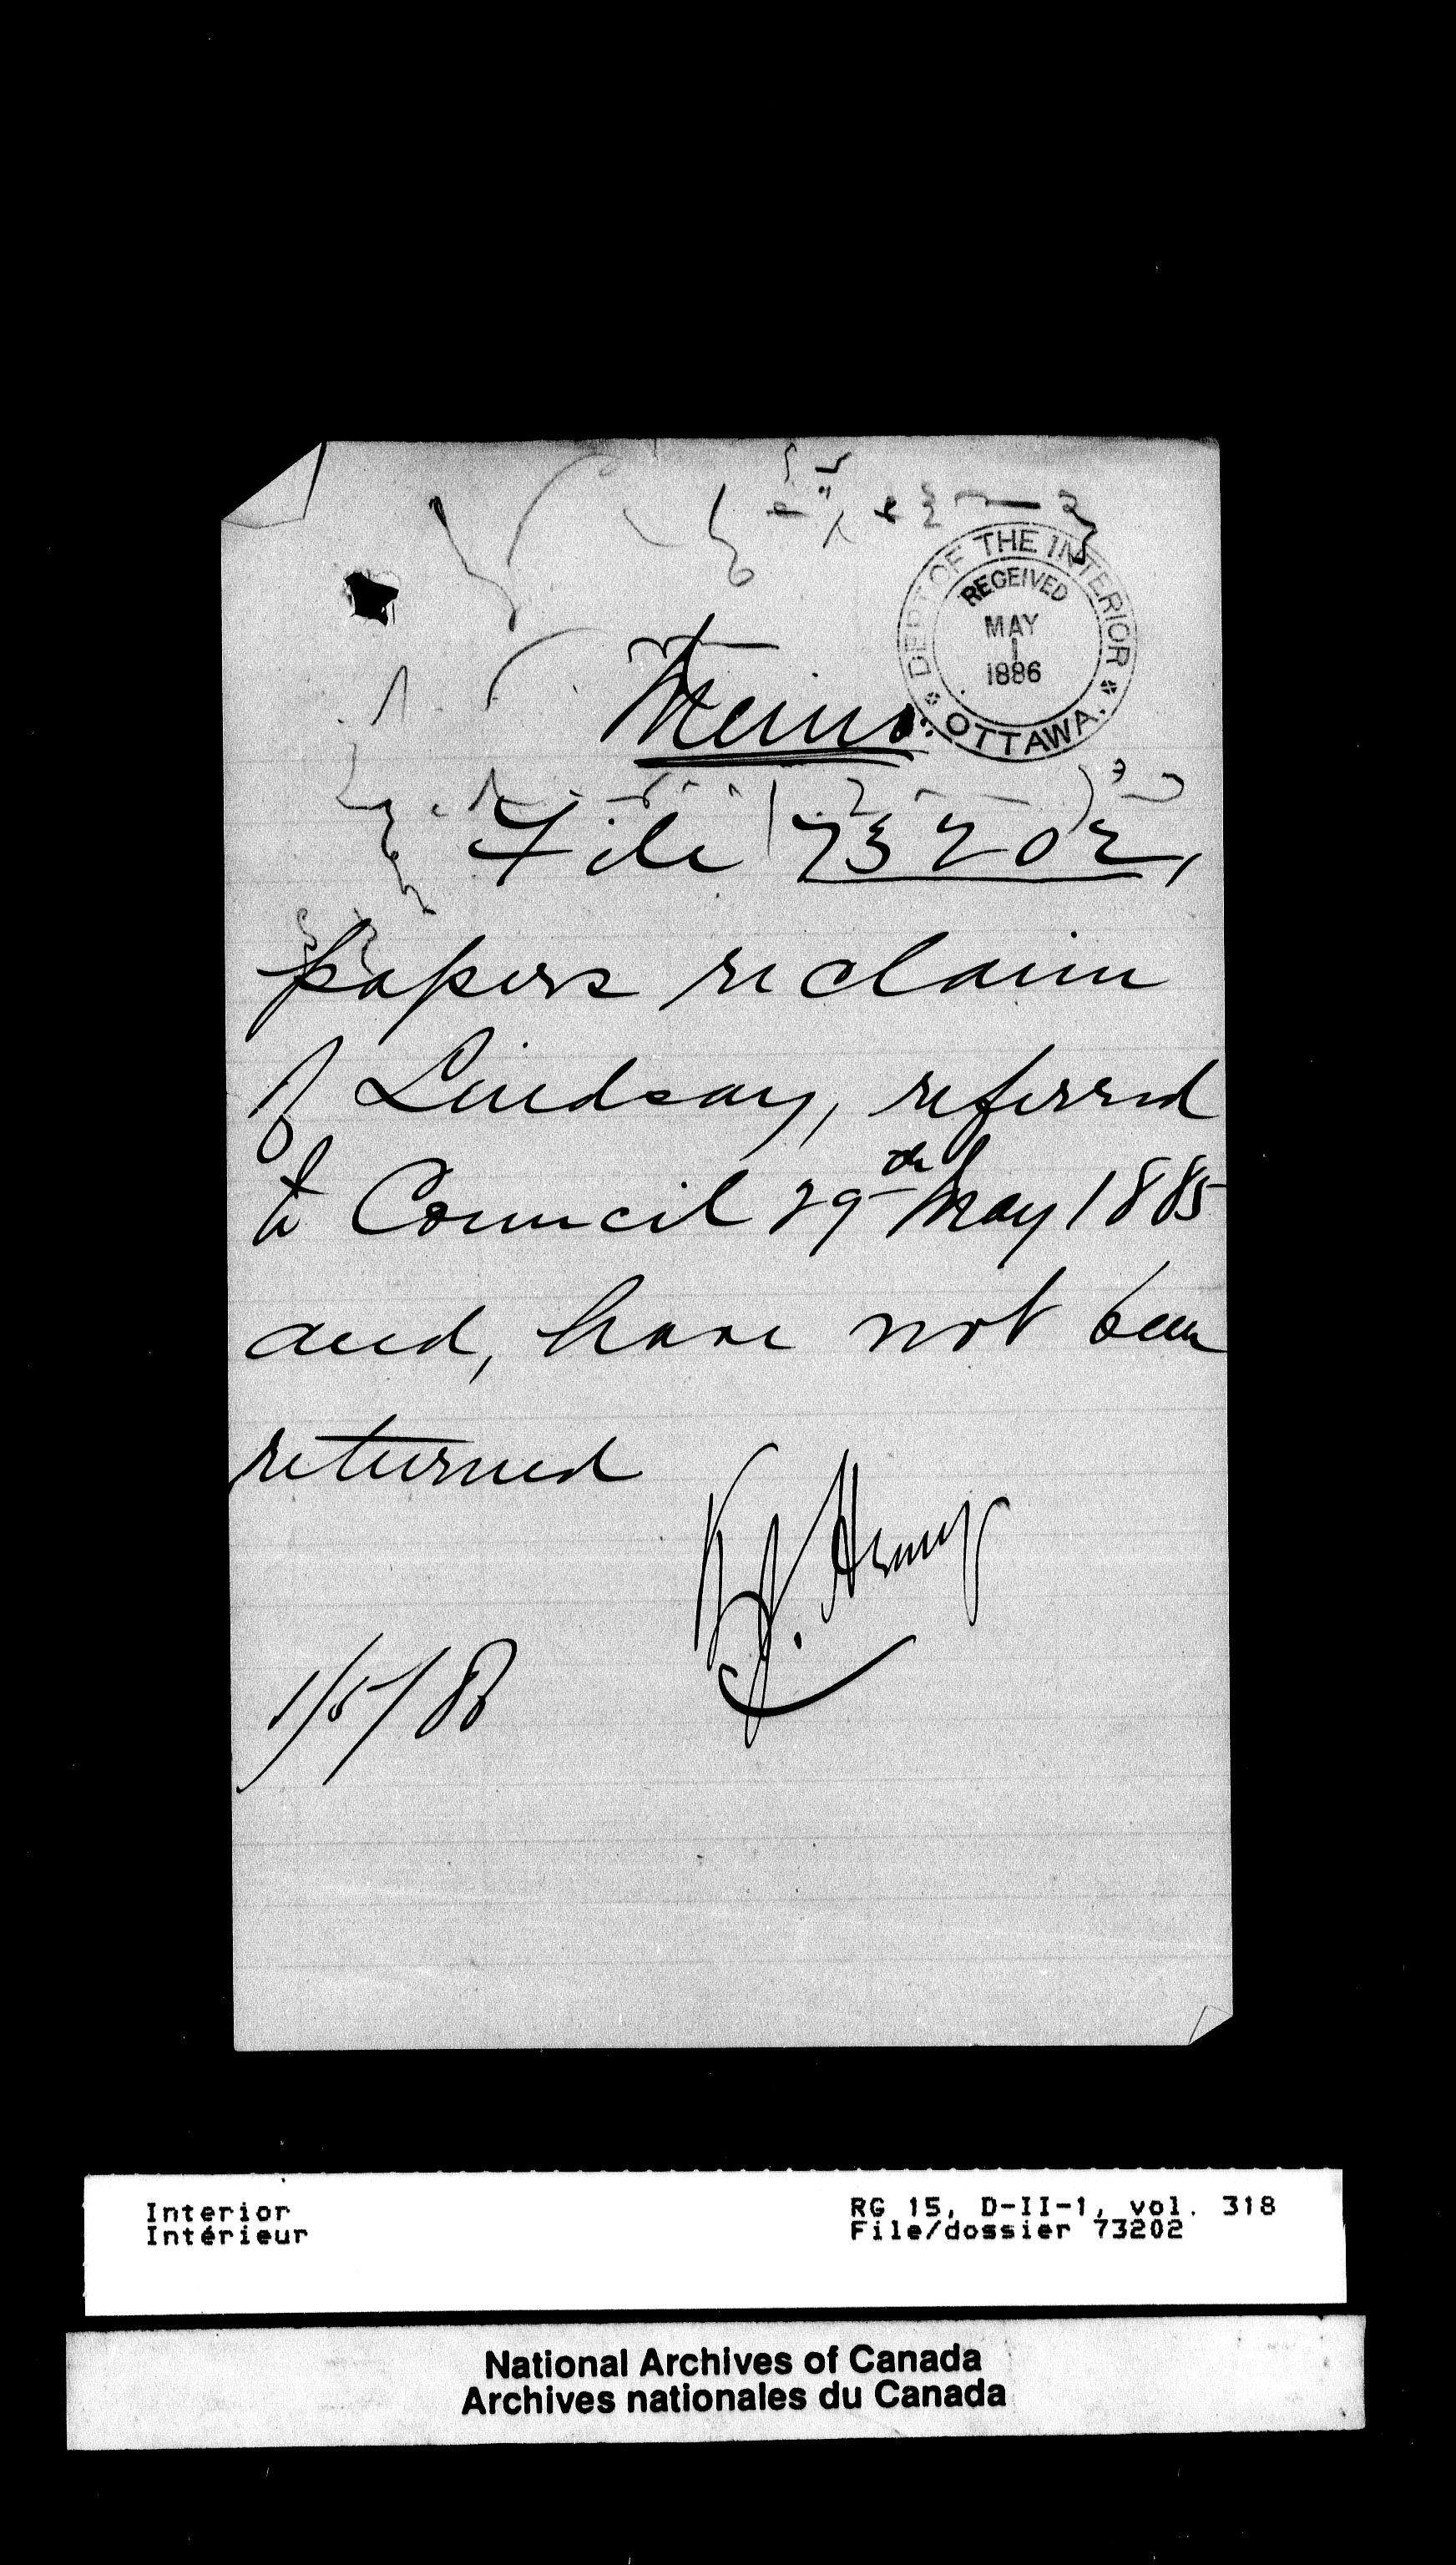 DEPT OF THE INTERIOR
RECEIVED
MAY
1
1886
OTTAWA.
Memo.
File 73202,
papers re claim
of Lindsay, referred
to Council 29th May 1885
and, have not been
returned
Henry
1/5/86
Interior
Intérieur
RG 15, D-II-1, vol. 318
File/dossier 73202
National Archives of Canada
Archives nationales du Canada